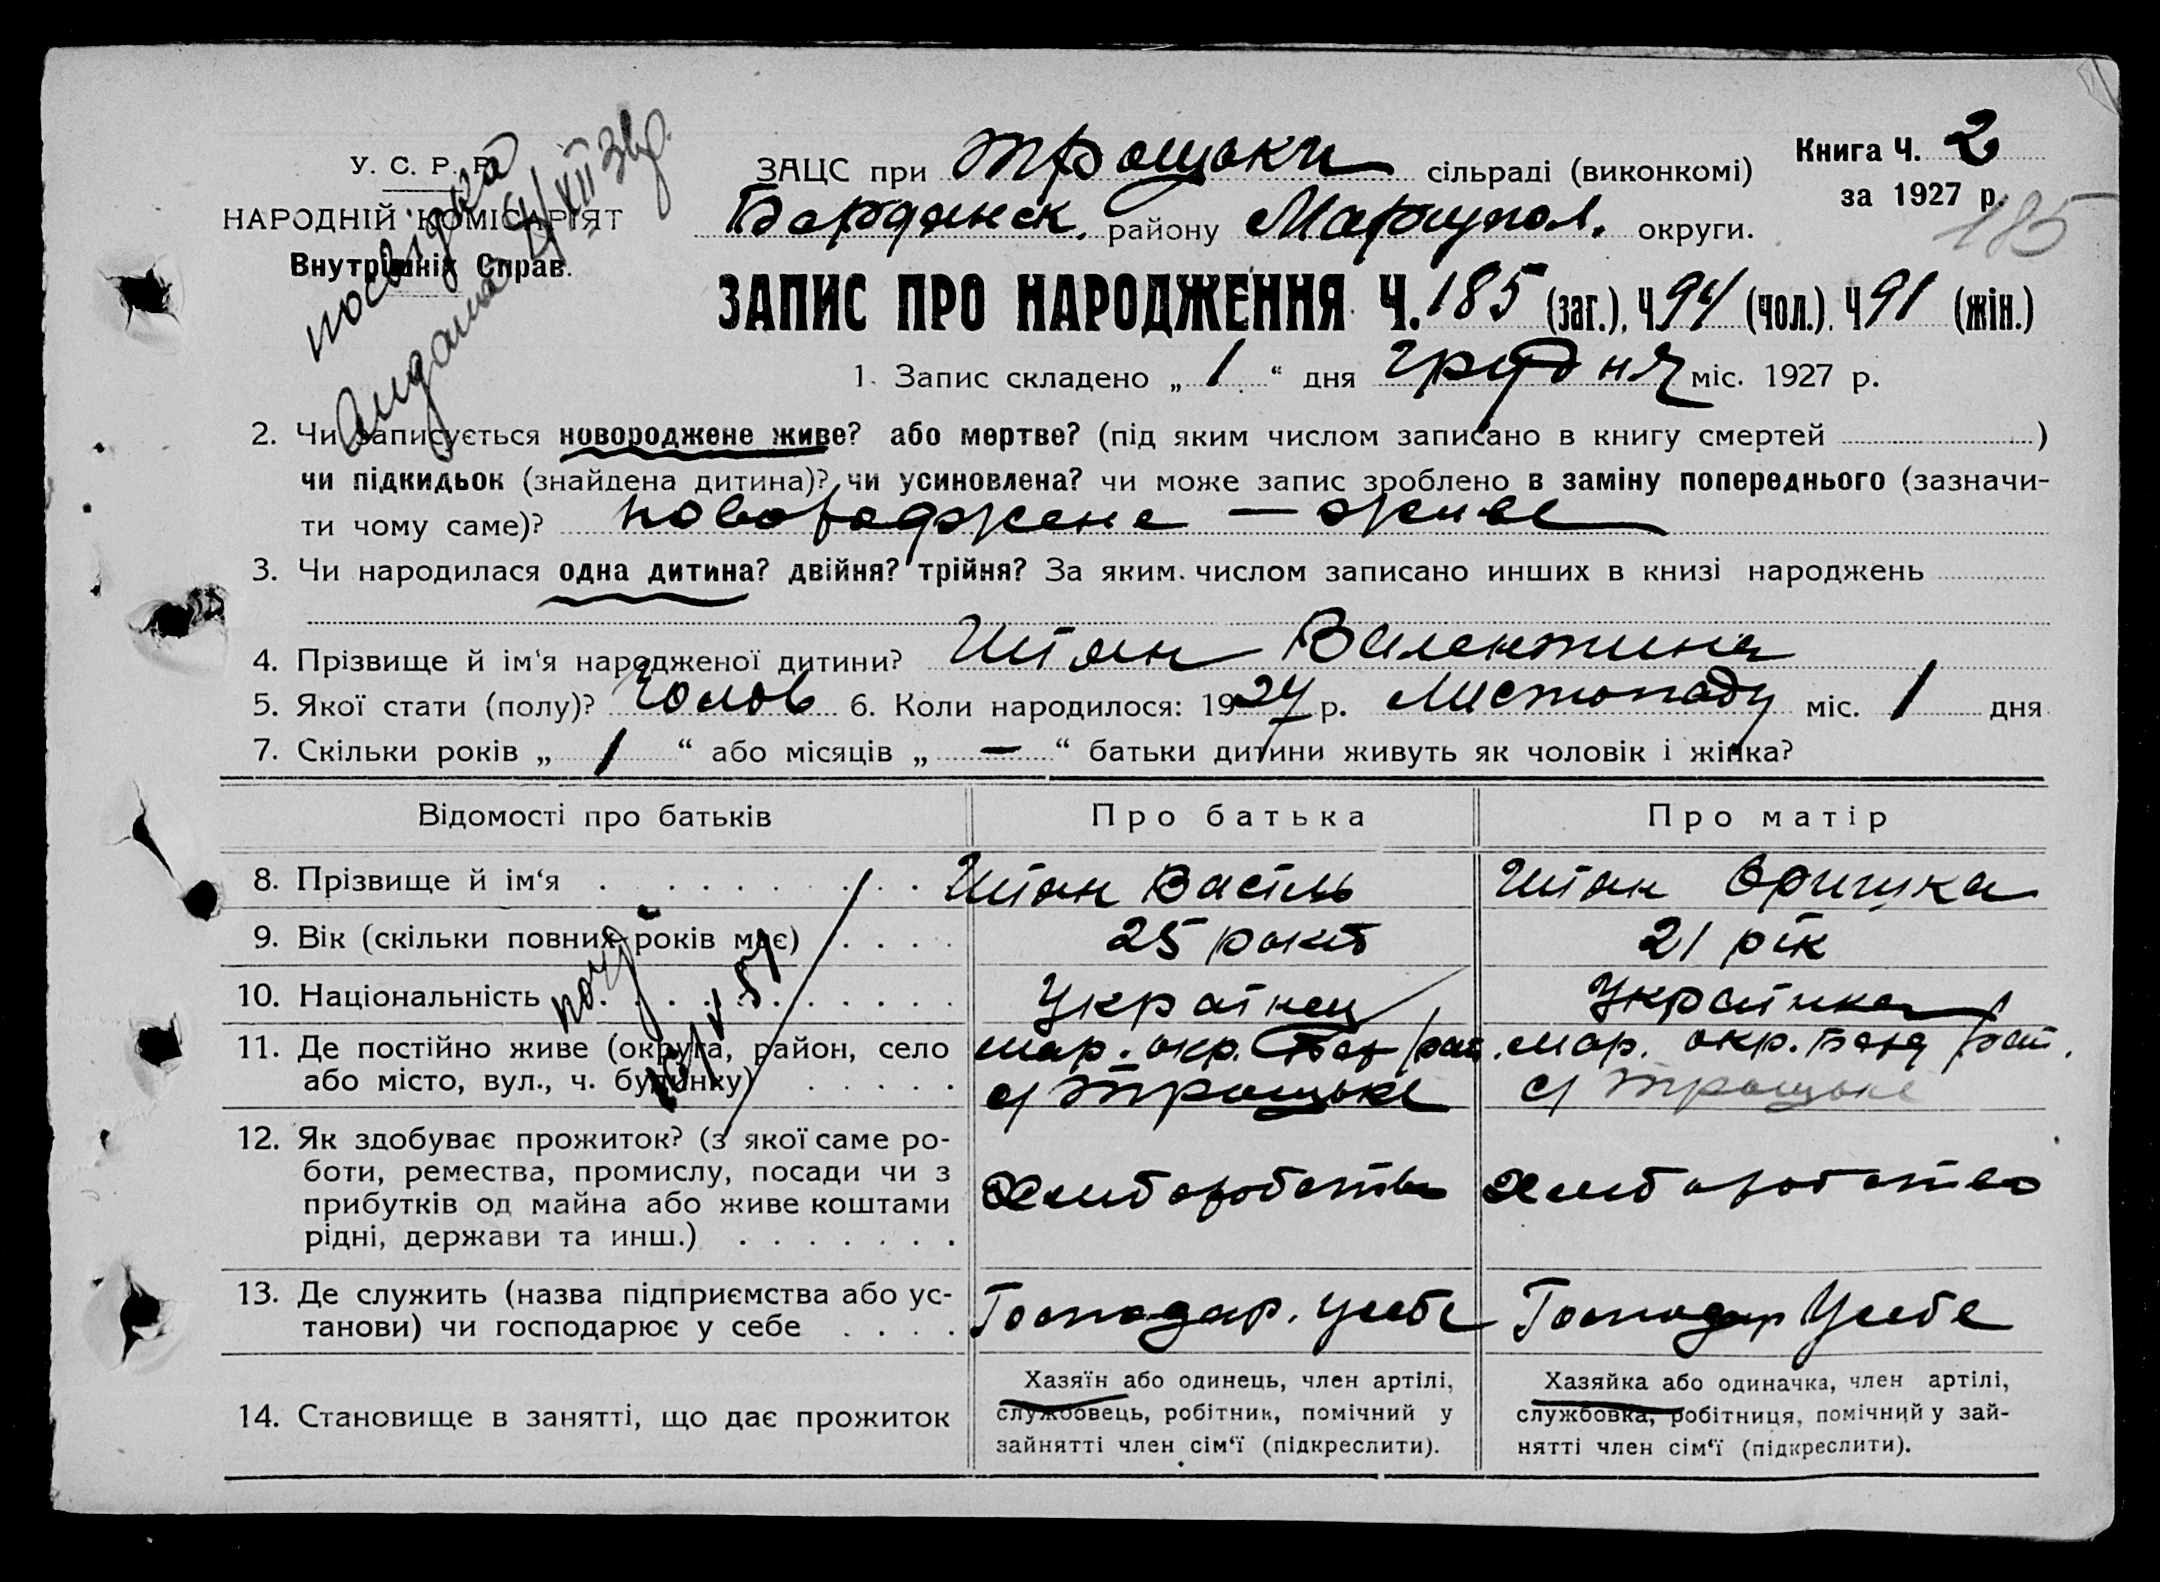 У. С. Р. Р.
НАРОДНІЙ КОМІСАРІЯТ
Внутрішніх Справ.
посвідка
видана 9/XII 39р.
ЗАЦС при Троцьки сільраді (виконкомі)
Бардянск. району Маріупол. округи.
Книга Ч. 2
за 1927 р.
185
ЗАПИС ПРО НАРОДЖЕННЯ Ч. 185 (заг.), Ч 94 (чол.). Ч 91 (жін.)
1. Запис складено „ 1 “ дня грудня міс. 1927 р.
2. Чи записується новороджене живе? або мертве? (під яким числом записано в книгу смертей )
чи підкидьок (знайдена дитина)? чи усиновлена? чи може запис зроблено в заміну попереднього (зазначи-
ти чому саме)? новороджене — живе
3. Чи народилася одна дитина? двійня? трійня? За яким числом записано инших в книзі народжень
4. Прізвище й ім'я народженої дитини? Штан Валентина
5. Якої стати (полу)? Чолов 6. Коли народилося: 1927 р. Листопаду міс. 1 дня
7. Скільки років „ 1 “ або місяців „ — “ батьки дитини живуть як чоловік і жінка?
Відомості про батьків Про батька Про матір
8. Прізвище й ім'я Штан Васіль Штан Оришка
9. Вік (скільки повних років має) 25 років 21 рік
10. Національність Українец Українка
11. Де постійно живе (округа, район, село або місто, вул., ч. будинку)
мар. окр. Бер/рай. с/ Троцьке
мар. окр. Берд/рай. с/ Троцьке
12. Як здобуває прожиток? (з якої саме ро-
боти, ремества, промислу, посади чи з
прибутків од майна або живе коштами
рідні, держави та инш.)
Хлиборобство Хлиборобство
13. Де служить (назва підприємства або ус-
танови) чи господарює у себе
Господар. усебе Господар Усебе
14. Становище в занятті, що дає прожиток
Хазяїн або одинець, член артілі,
службовець, робітник, помічний у
зайнятті член сім‘ї (підкреслити).
Хазяйка або одиначка, член артілі,
службовка, робітниця, помічний у зай-
нятті член сім‘ї (підкреслити).